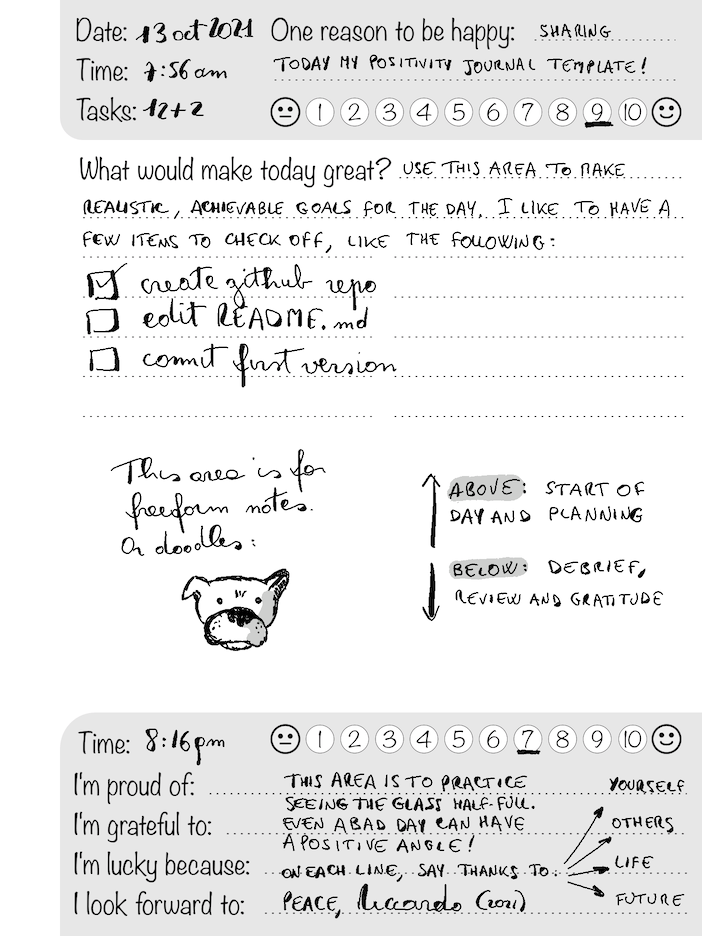 Date: 13 oct 2021 One reason to be happy: SHARING
Time: 7:56 am TODAY MY POSITIVITY JOURNAL TEMPLATE!
Tasks: 12+2 1 2 3 4 5 6 7 8 9 10
What would make today great? USE THIS AREA TO MAKE
REALISTIC, ACHIEVABLE GOALS FOR THE DAY. I LIKE TO HAVE A
FEW ITEMS TO CHECK OFF, LIKE THE FOLLOWING:
create github repo
edit README.md
commit first version
This area is for
freeform notes.
Or doodles:
ABOVE: START OF
DAY AND PLANNING
BELOW: DEBRIEF,
REVIEW AND GRATITUDE
Time: 8:16pm 1 2 3 4 5 6 7 8 9 10
I'm proud of: THIS AREA IS TO PRACTICE YOURSELF
SEEING THE GLASS HALF-FULL.
I'm grateful to: EVEN A BAD DAY CAN HAVE OTHERS
A POSITIVE ANGLE!
I'm lucky because: ON EACH LINE, SAY THANKS TO: LIFE
I look forward to: PEACE, Riccardo (2021) FUTURE